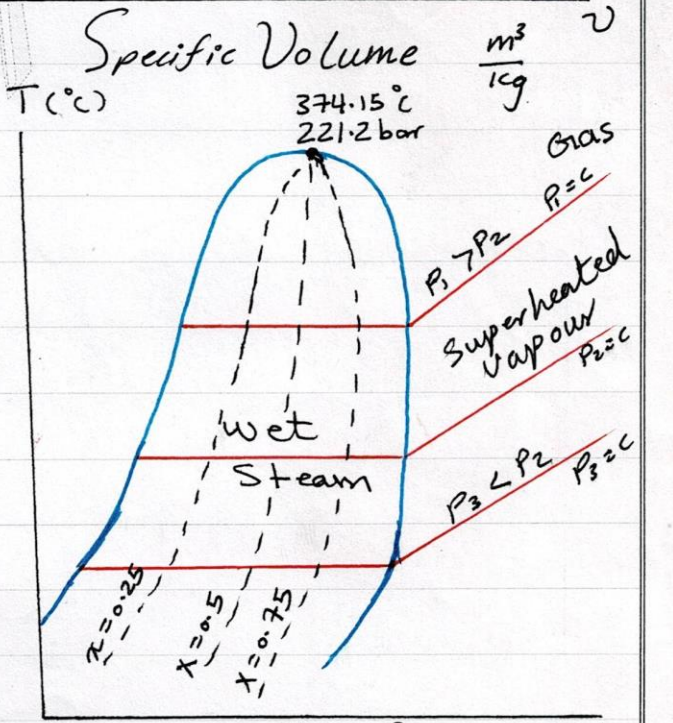 Specific Volume m³/kg υ
T(°C)
374.15°C
221.2 bar
Gas
P₁=c
P₁ > P₂
Superheated
Vapour
P₂=c
Wet
Steam
P₃ < P₂
P₃=c
x=0.25
x=0.5
x=0.75